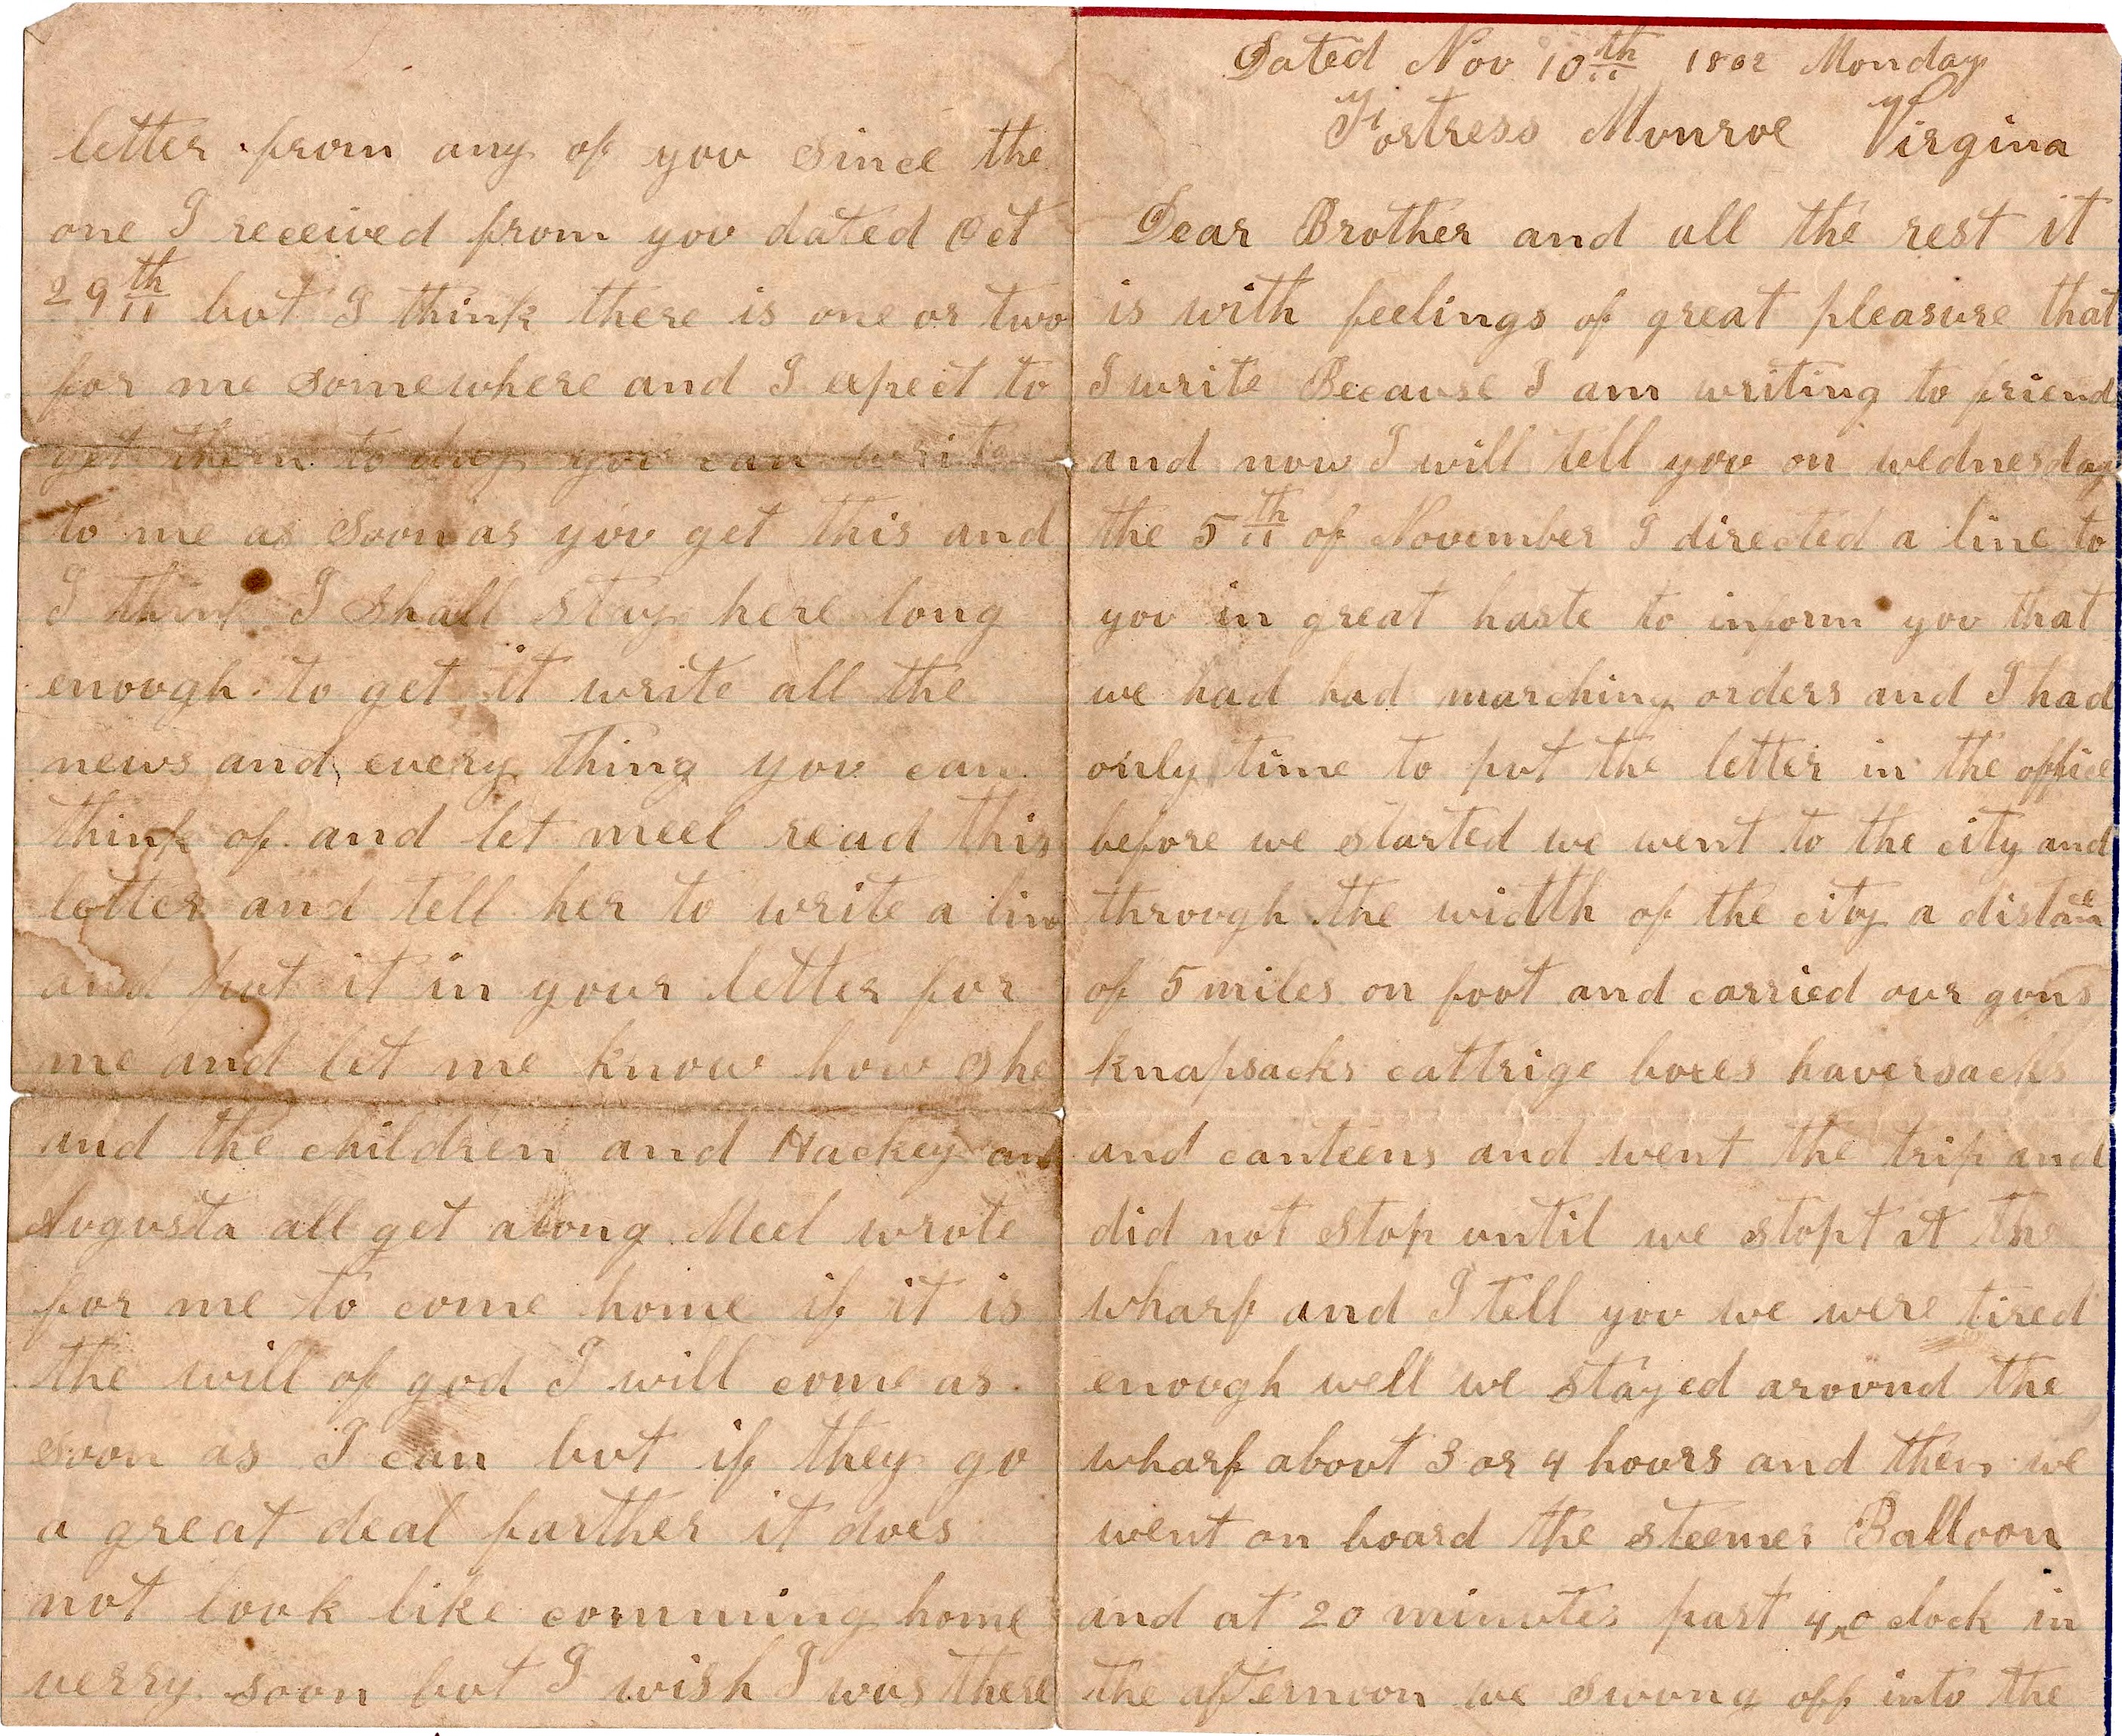 Dated Nov 10th 1862 Monday
Fortress Munroe Virgina
Dear Brother and all the rest it
is with feelings of great pleasure that
I write Because I am writing to friends
and now I will tell you on wednesday
the 5th of November I directed a line to
you in great haste to inform you that
we had had marching orders and I had
only time to put the letter in the office
before we started we went to the city and
through the width of the city a distance
of 5 miles on foot and carried our guns
knapsacks cattrige boxes haversacks
and canteens and went the trip and
did not stop until we stopt at the
wharf and I tell you we were tired
enough well we stayed around the
wharf about 3 or 4 hours and then we
went on board the steemer Balloon
and at 20 minutes past 4,o clock in
the afternoon we swung off into the
letter from any of you since the
one I received from you dated Oct
29th but I think there is one or two
for me somewhere and I expect to
get them to day you can write
to me as soon as you get this and
I think I shall stay here long
enough to get it write all the
news and every thing you can
think of and let meel read this
letter and tell her to write a line
and put it in your letter for
me and let me know how she
and the children and Hackey and
Augusta all get along Meel wrote
for me to come home if it is
the will of god I will come as
soon as I can but if they go
a great deal farther it does
not look like comming home
verry soon but I wish I was there